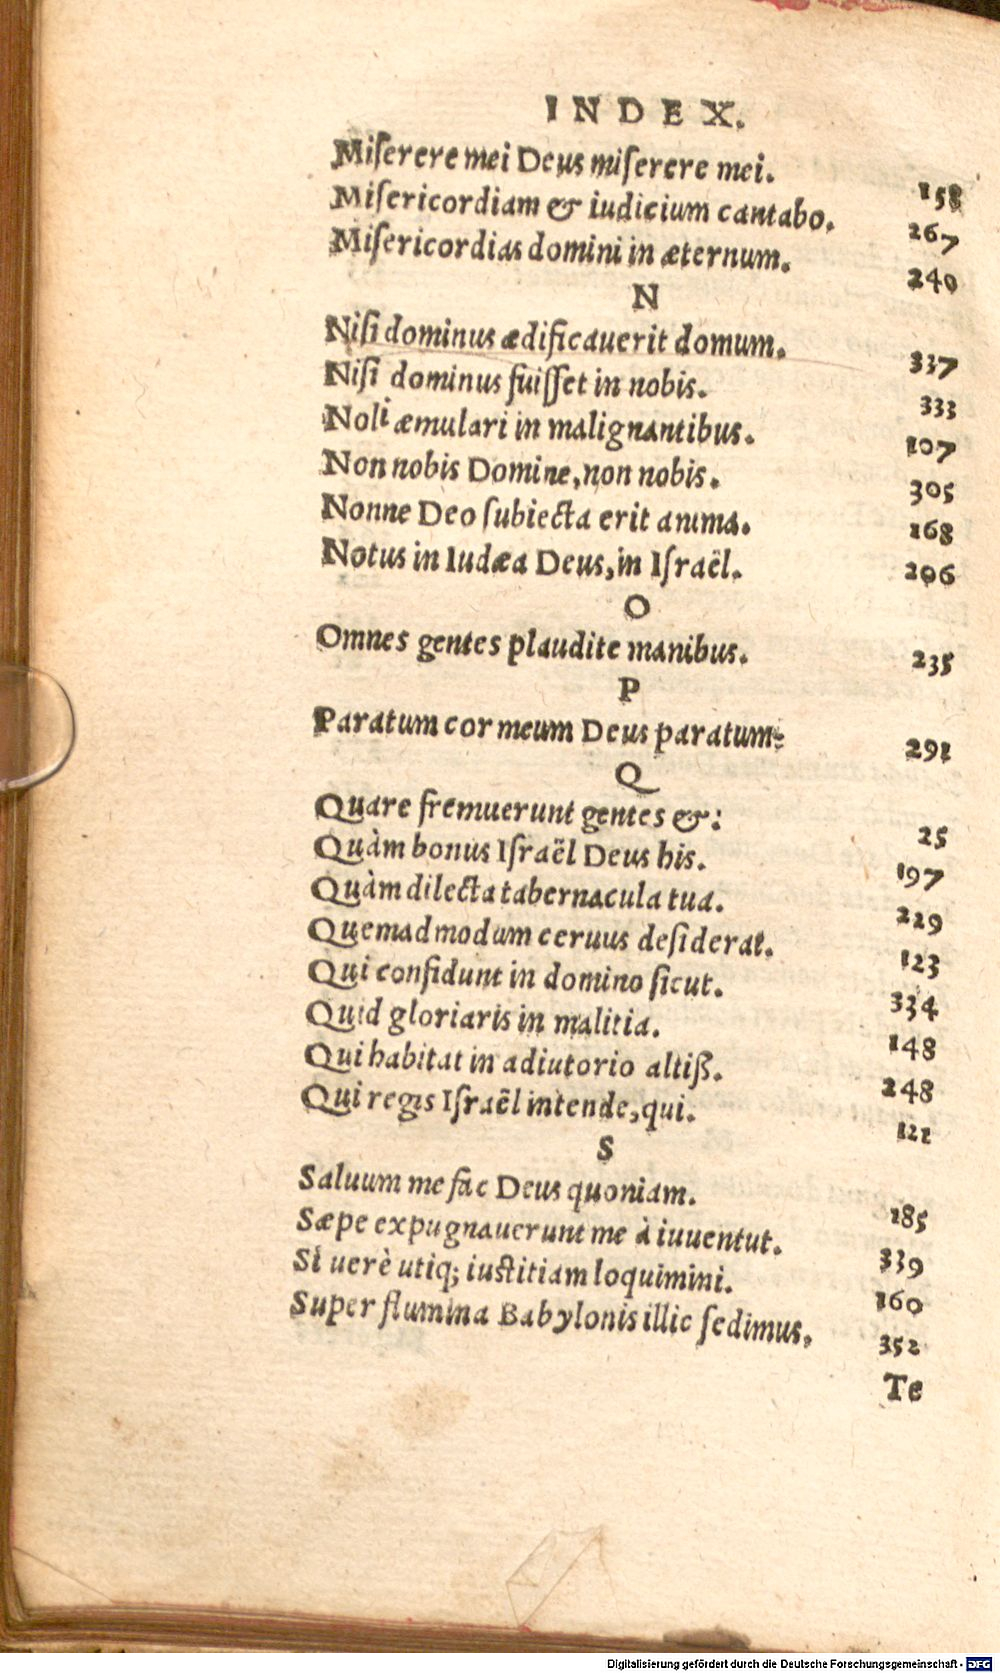 INDEX.
Miſerere mei Deus miſerere mei. 158
Miſericordiam & iudicium cantabo. 267
Miſericordias domini in æternum. 240
N
Niſi dominus ædificauerit domum. 337
Niſi dominus fuiſſet in nobis. 333
Noli æmulari in malignantibus. 107
Non nobis Domine, non nobis. 305
Nonne Deo ſubiecta erit anima. 168
Notus in Iudæa Deus, in Iſraël. 206
O
Omnes gentes plaudite manibus. 235
P
Paratum cor meum Deus paratum: 291
Q
Quare fremuerunt gentes &: 25
Quàm bonus Iſraël Deus his. 197
Quàm dilecta tabernacula tua. 229
Quemadmodum ceruus deſiderat. 123
Qui confidunt in domino ſicut. 334
Quid gloriaris in malitia. 148
Qui habitat in adiutorio altiß. 248
Qui regis Iſraël intende, qui. 121
S
Saluum me fac Deus quoniam. 185
Sæpe expugnauerunt me à iuuentut. 339
Si uerè utiq; iuſtitiam loquimini. 160
Super flumina Babylonis illic ſedimus. 352
Te
Digitalisierung gefördert durch die Deutsche Forschungsgemeinschaft - DFG